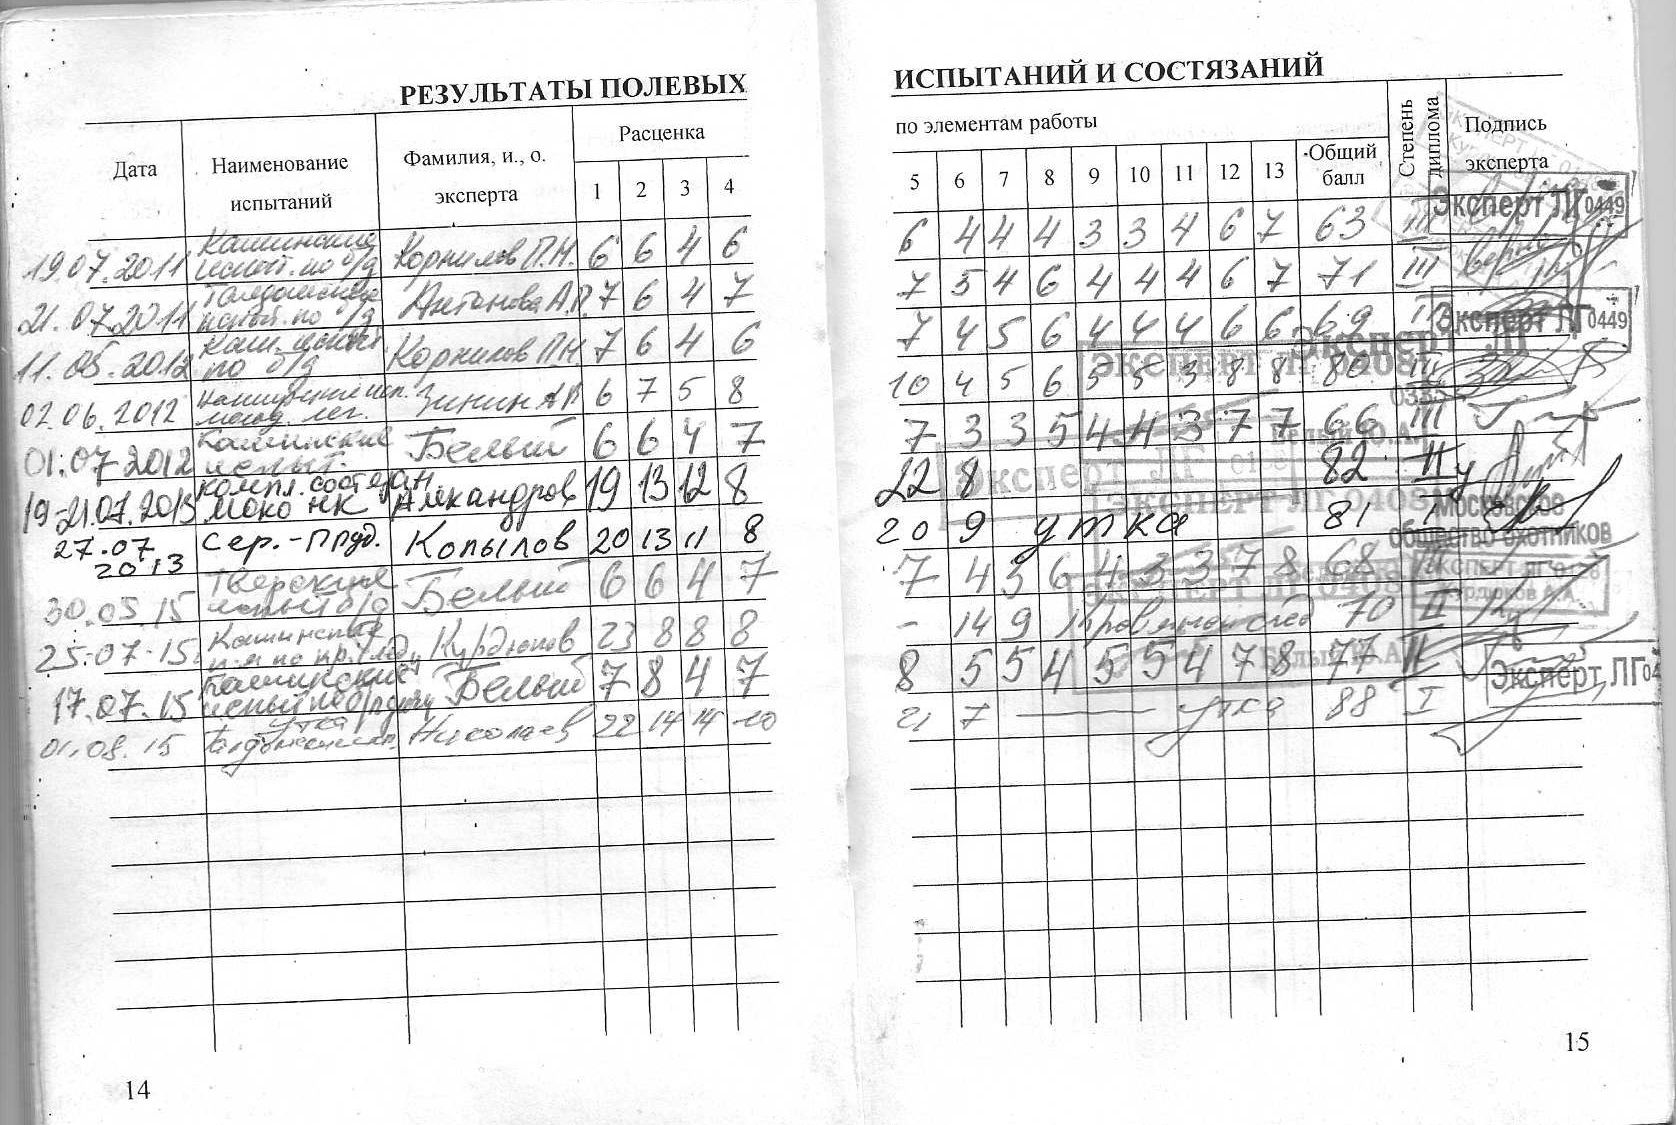 РЕЗУЛЬТАТЫ ПОЛЕВЫХ
Дата
Наименование
испытаний
Фамилия, и., о.
эксперта
Расценка
1 2 3 4
19.07.2011 Кашинские Корнилов П.Н. 6 6 4 6
испыт. по б/д
21.07.2011 Антонова А.П. 7 6 4 7
11.05.2012 Каш. Корнилов П.Н. 7 6 4 6
по б/д
02.06.2012 Зинин 6 7 5 8
01.07.2012 Кашинские Белый 6 6 4 7
испыт.
19-21.07.2013 компл. состязан. Александров 19 13 12 8
27.07.2013 Сер.-Пруд. Копылов 20 13 11 8
30.05.15 Тверские Белый 6 6 4 7
25.07.15 Кашинские Курдюков 23 8 8 8
17.07.15 Кашинские Белый 7 8 4 7
01.08.15 утка Николаев 22 14 14 10
14
ИСПЫТАНИЙ И СОСТЯЗАНИЙ
по элементам работы
5 6 7 8 9 10 11 12 13
Общий
балл
Степень
диплома
Подпись
эксперта
6 4 4 4 3 3 4 6 7 63 III
7 5 4 6 4 4 4 6 7 71 III
7 4 5 6 4 4 4 6 6 69
10 4 5 6 5 5 3 8 8 80
7 3 3 5 4 4 3 7 7 66 III
22 8 82 II
20 9 утка 81
7 4 5 6 4 3 3 7 8 68 III
- 14 9 Кровяной след 70 II
8 5 5 4 5 5 4 7 8 77 II
21 7 утка 88 I
Эксперт ЛГ 0449
Эксперт ЛГ 0449
ЭКСПЕРТ ЛГ 0408
Эксперт ЛГ
ЭКСПЕРТ ЛГ 0408
МОСКОВСКОЕ
ОБЩЕСТВО ОХОТНИКОВ
Курдюков А.А.
Белый Ю.А.
Эксперт ЛГ
15